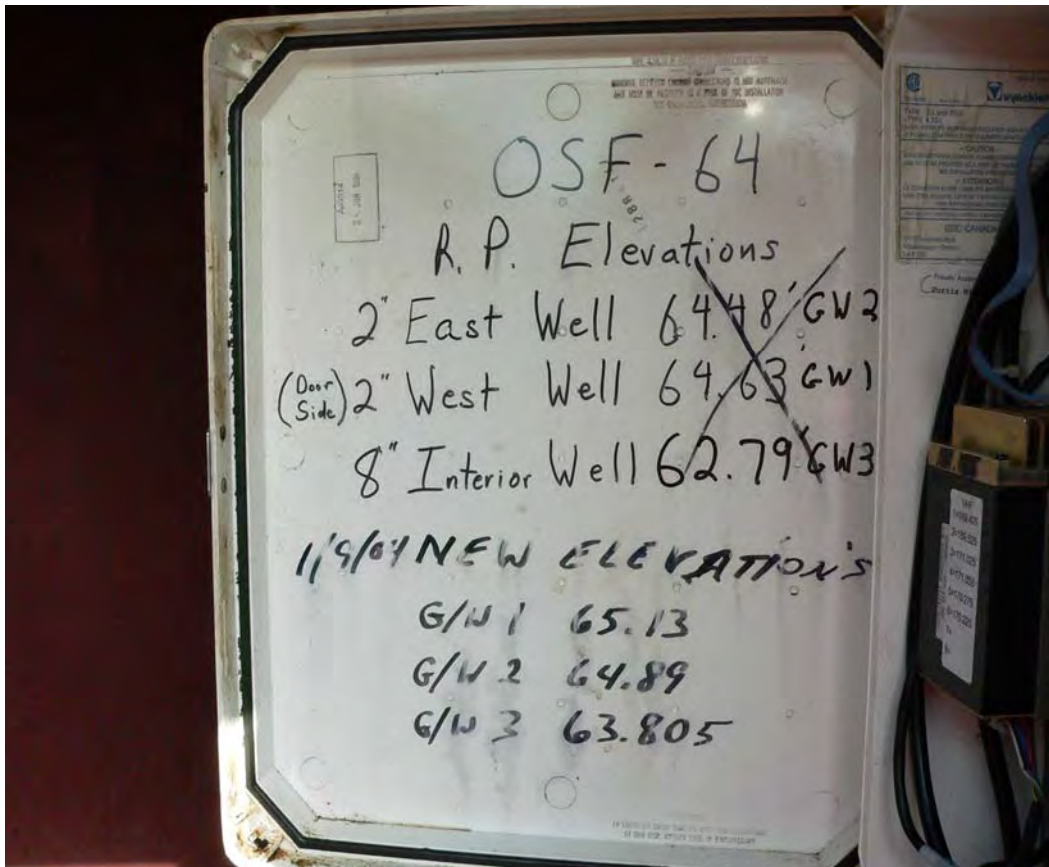 OSF-64
R.P. Elevations
2" East Well 64.48' GW2
(Door Side) 2" West Well 64.63' GW1
8" Interior Well 62.79' GW3
1/9/04 NEW ELEVATION'S
G/W 1 65.13
G/W 2 64.89
G/W 3 63.805
CAUTION